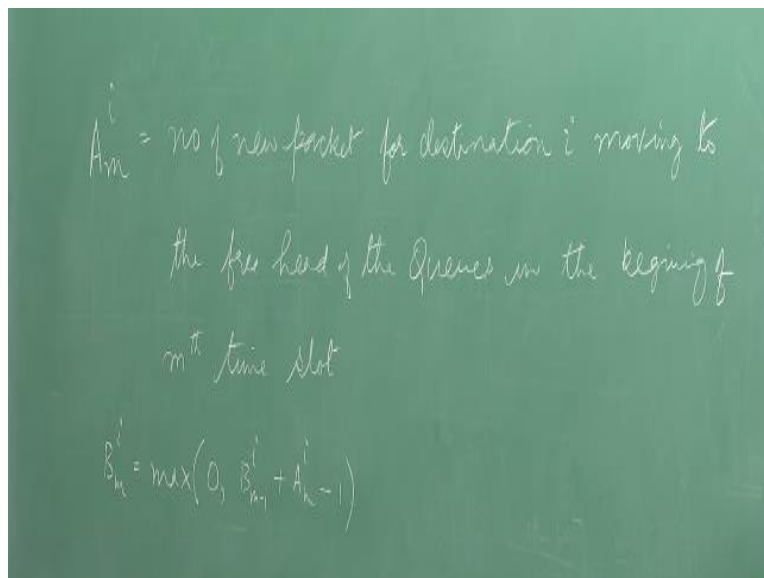 A_m^i = no of new packet for destination i moving to
the free head of the Queues in the begining of
m^th time slot
B_m^i = max(0, B_{m-1}^i + A_m^i - 1)